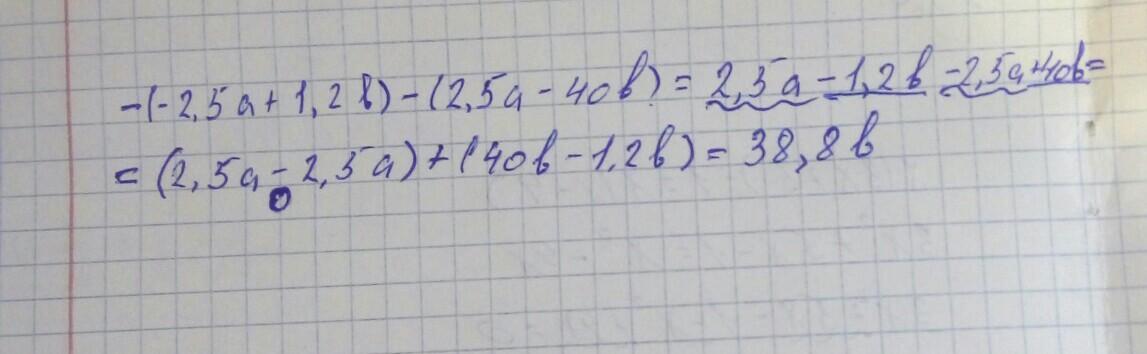 -(-2,5a+1,2b)-(2,5a-40b)=2,5a-1,2b-2,5a+40b=
=(2,5a-2,5a)+(40b-1,2b)=38,8b
0